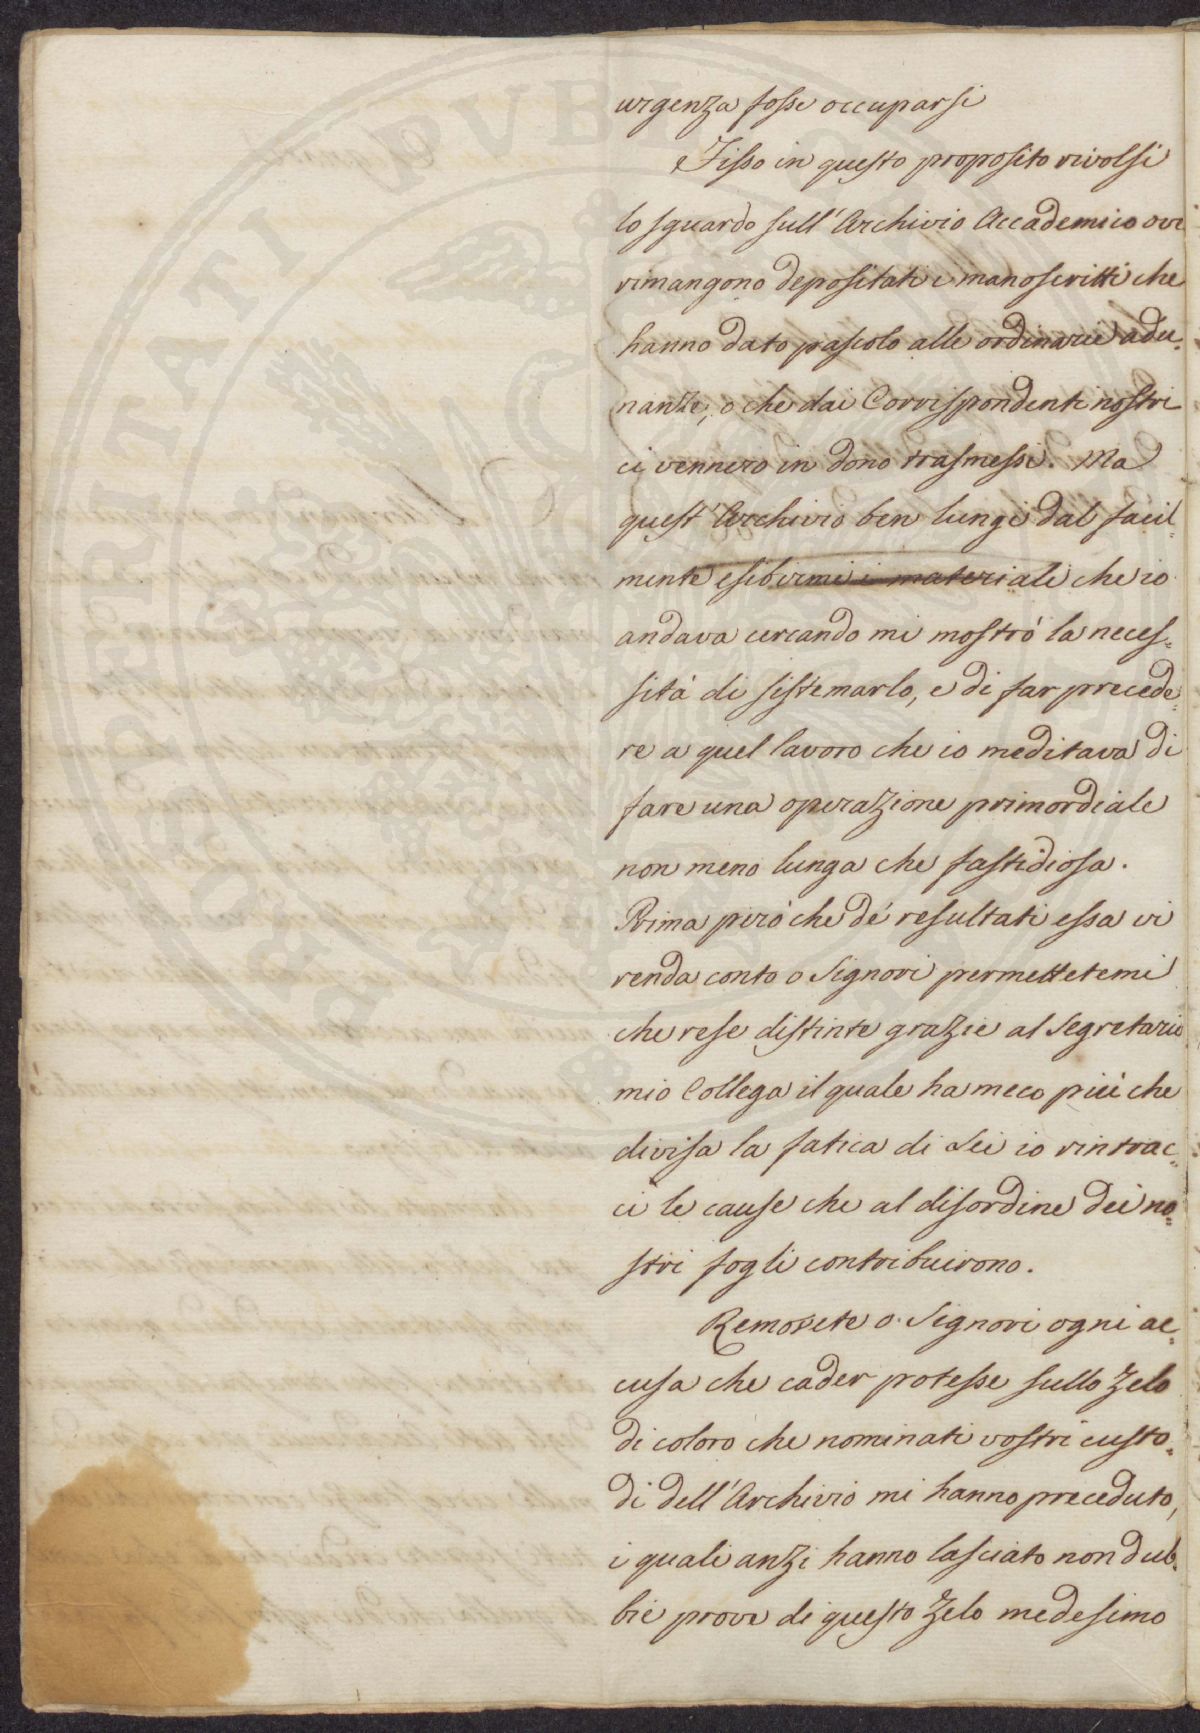 urgenza fosse occuparsi
Fisso in questo proposito rivolsi
lo sguardo sull'Archivio Accademico ove
rimangono depositati i manoscritti che
hanno dato pascolo alle ordinarie adu=
nanze, o che dai Corrispondenti nostri
ci vennero in dono trasmessi. Ma
quest'Archivio ben lungi dal facil=
mente esibirmi i materiali che io
andava cercando mi mostrò la neces=
sità di sistemarlo, e di far precede=
re a quel lavoro che io meditava di
fare una operazione primordiale
non meno lunga che fastidiosa.
Prima però che de' resultati essa vi
renda conto o Signori permettetemi
che rese distinte grazie al Segretario
mio Collega il quale ha meco più che
divisa la fatica di Lei io rintrac=
ci le cause che al disordine dei no=
stri fogli contribuirono.
Removete o Signori ogni ac=
cusa che cader potesse sullo zelo
di coloro che nominati vostri custo=
di dell'Archivio mi hanno preceduto,
i quali anzi hanno lasciato non dub=
bie prove di questo zelo medesimo
PVBL